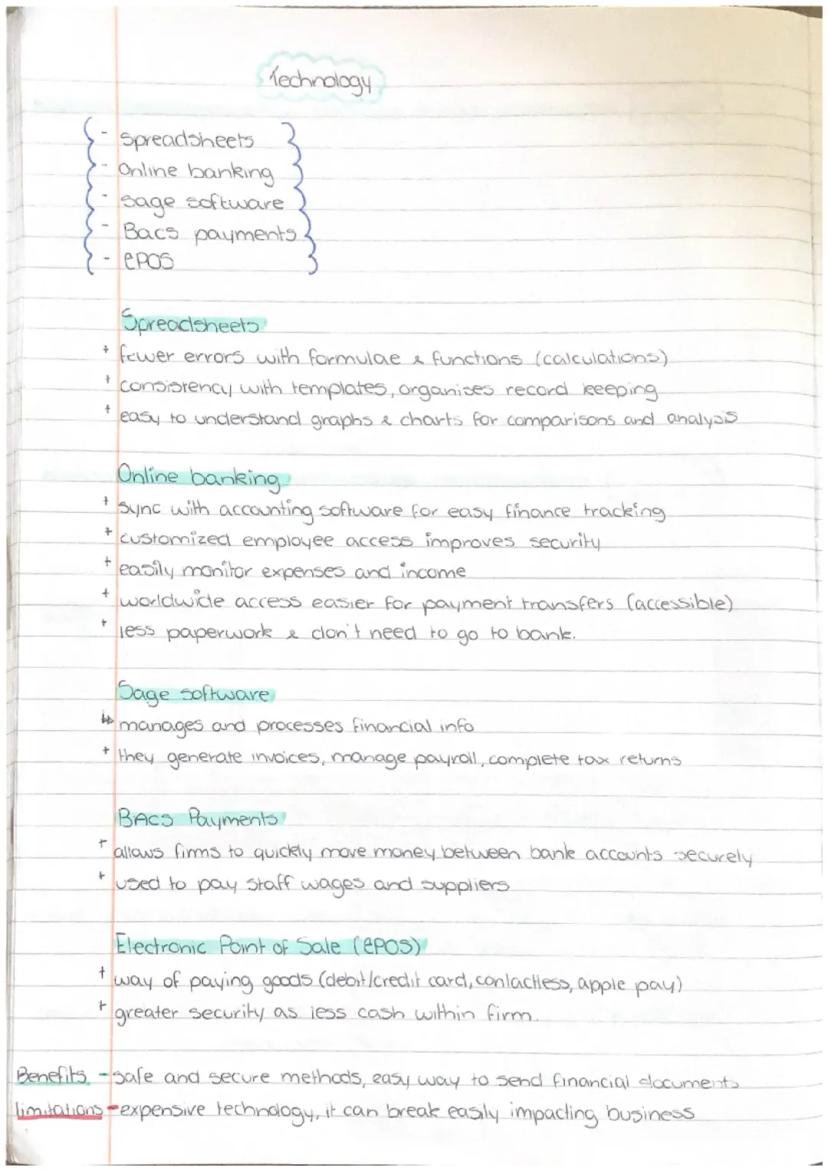 Technology
- Spreadsheets
- Online banking
- Sage software
- Bacs payments
- ePOS
Spreadsheets
+ fewer errors with formulae & functions (calculations)
+ consistency with templates, organises record keeping
+ easy to understand graphs & charts for comparisons and analysis
Online banking
+ sync with accounting software for easy finance tracking
+ customized employee access improves security
+ easily monitor expenses and income
+ worldwide access easier for payment transfers (accessible)
+ less paperwork & don't need to go to bank.
Sage software
↳ manages and processes financial info
+ they generate invoices, manage payroll, complete tax returns
BACS Payments
+ allows firms to quickly move money between bank accounts securely
+ used to pay staff wages and suppliers
Electronic Point of Sale (ePOS)
+ way of paying goods (debit/credit card, contactless, apple pay)
+ greater security as less cash within firm.
Benefits - safe and secure methods, easy way to send financial documents
limitations - expensive technology, it can break easily impacting business